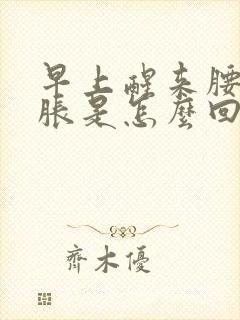 早上醒来腰
脹是怎麼回
齊木優